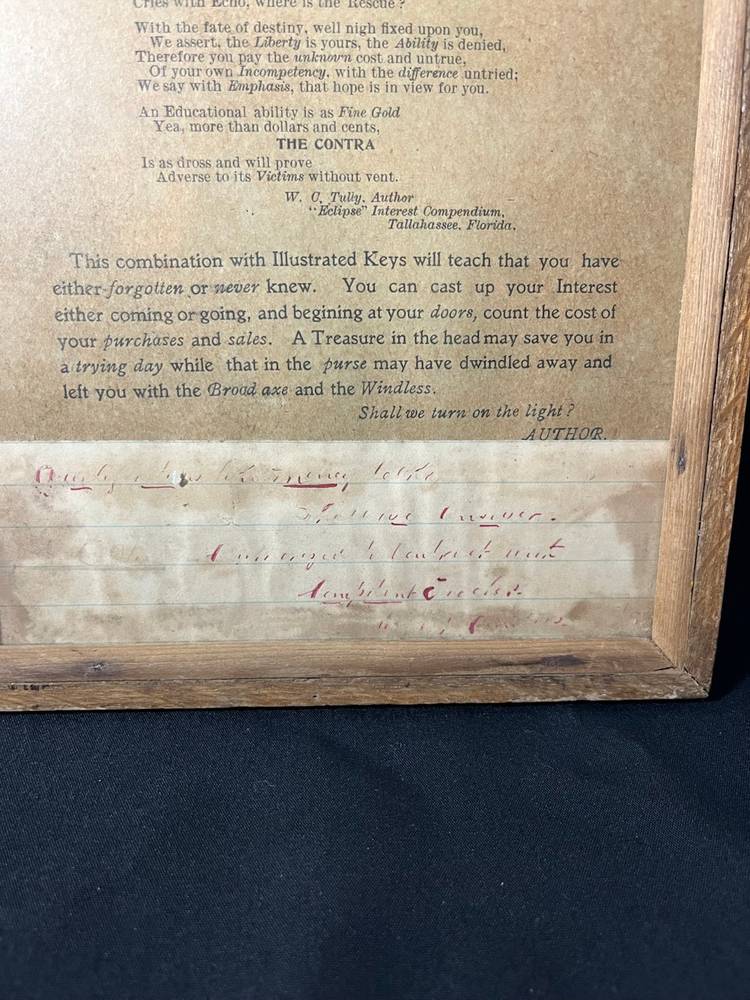 Cries with Echo, where is the Rescue?
With the fate of destiny, well nigh fixed upon you,
We assert, the Liberty is yours, the Ability is denied,
Therefore you pay the unknown cost and untrue,
Of your own Incompetency, with the difference untried;
We say with Emphasis, that hope is in view for you.
An Educational ability is as Fine Gold
Yea, more than dollars and cents,
THE CONTRA
Is as dross and will prove
Adverse to its Victims without vent.
W. C. Tully, Author
"Eclipse" Interest Compendium,
Tallahassee, Florida.
This combination with Illustrated Keys will teach that you have
either forgotten or never knew. You can cast up your Interest
either coming or going, and begining at your doors, count the cost of
your purchases and sales. A Treasure in the head may save you in
a trying day while that in the purse may have dwindled away and
left you with the Broad axe and the Windless.
Shall we turn on the light?
AUTHOR.
money talks
Answer.